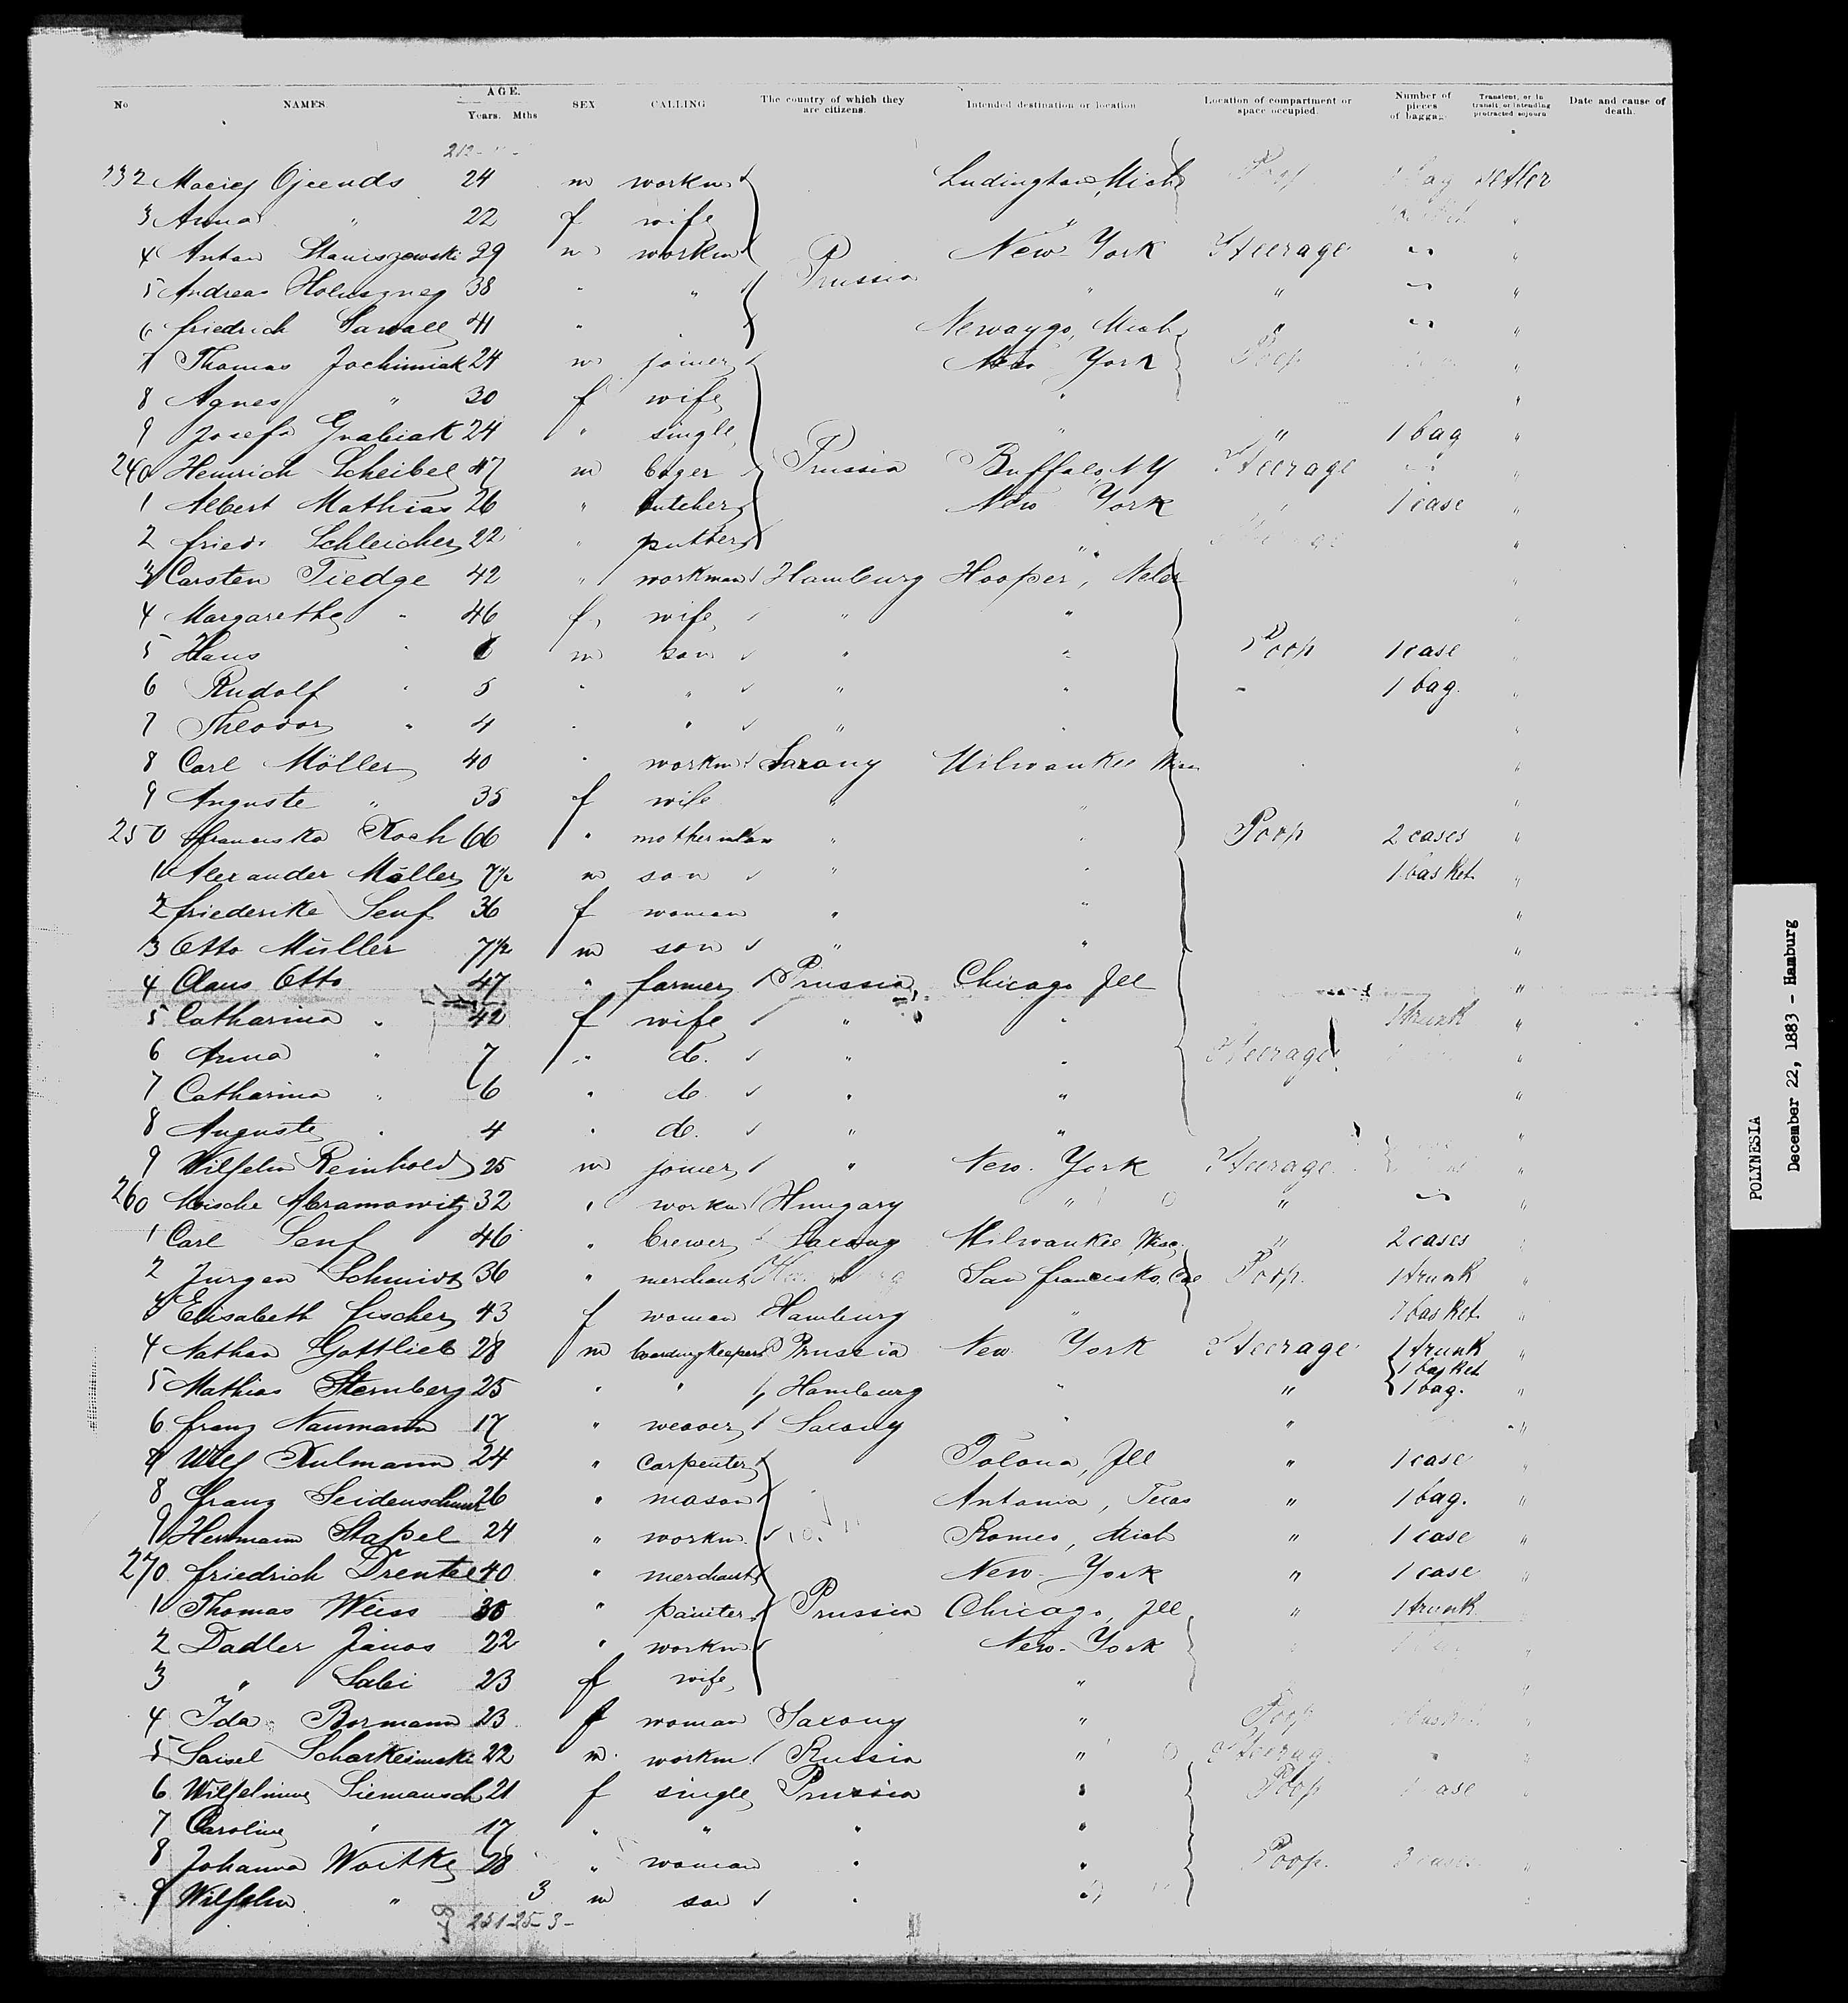 No NAMES. AGE. Years. Mths SEX CALLING The country of which they are citizens. Intended destination or location Location of compartment or space occupied. Number of pieces of baggage Transient, or in transit, or intending protracted sojourn Date and cause of death.
232 24 m workm Ludington, Mich Poop 1 bag settler
3 Anna " 22 f wife " "
4 Anton Staniszewski 29 m workm Prussia New York Steerage "
5 Andreas 38 " " " " "
6 friedrich 41 " " Newaygo, Mich " "
7 Thomas Jochimiak 24 m joiner New York Poop "
8 Agnes " 30 f wife " "
9 Josefa Grabiak 24 " single " " 1 bag "
240 Heinrich Scheibel 47 m Prussia Buffalo, N Y Steerage "
1 Albert Mathias 26 " butcher New York 1 case "
2 friedr Schleicher 22 " " Steerage "
3 Carsten Tiedge 42 " workman Hamburg Hooper, Neb "
4 Margarethe " 46 f wife " " "
5 Hans " 6 m son " " Poop 1 case "
6 Rudolf " 5 " " " " " 1 bag. "
7 Theodor " 4 " " " " "
8 Carl Möller 40 " workm Saxony Milwaukee Wisc "
9 Auguste " 35 f wife " " "
250 franciska Koch 66 " mother in law " " Poop 2 cases "
1 Alexander Möller 7½ m son " " 1 basket "
2 friederike Senf 36 f woman " " "
3 Otto Müller 7½ m son " " "
4 Claus Otto 47 " farmer Prussia Chicago Ill "
5 Catharina " 42 f wife " " 1 trunk "
6 Anna " 7 " do. " " Steerage "
7 Catharina " 6 " do. " " "
8 Auguste " 4 " do. " " "
9 Wilhelm Reinhold 25 m joiner " New York Steerage "
260 Abramowitz 32 " workm Hungary " " "
1 Carl Senf 46 " brewer Saxony Milwaukee Wisc. " 2 cases "
2 Jürgen Schmidt 36 " merchant San francisko, Cal Poop. 1 trunk "
3 Elisabeth fischer 43 f woman Hamburg " 1 basket "
4 Nathan Gottlieb 28 m boardingkeeper Prussia New York Steerage 1 trunk "
1 basket
5 Mathias Sternberg 25 " " Hamburg " " 1 bag. "
6 franz Naumann 17 " weaver Saxony " " "
7 Kulmann 24 " carpenter Tolona, Ill " 1 case "
8 franz 26 " mason Antonia, Texas " 1 bag. "
9 Hermann Stapel 24 " workm. Romeo, Mich " 1 case "
270 friedrich Drentel 40 " merchant New York " 1 case "
1 Thomas Weiss 30 " painter Prussia Chicago, Ill " 1 trunk
2 Dadler Janos 22 " workm New York "
3 " Sabi 23 f wife " "
4 Ida Bormann 23 f woman Saxony " Poop 1 basket "
5 22 m. workm Russia " Steerage " "
6 Wilhelmine Siemansch 21 f single Prussia " Poop 1 case "
7 Caroline " 17 " " " "
8 Johanna Woitke 28 " woman " " Poop. 3 cases "
9 Wilhelm " 3 m son " " "
251-25-3-
POLYNESIA
December 22, 1883 - Hamburg